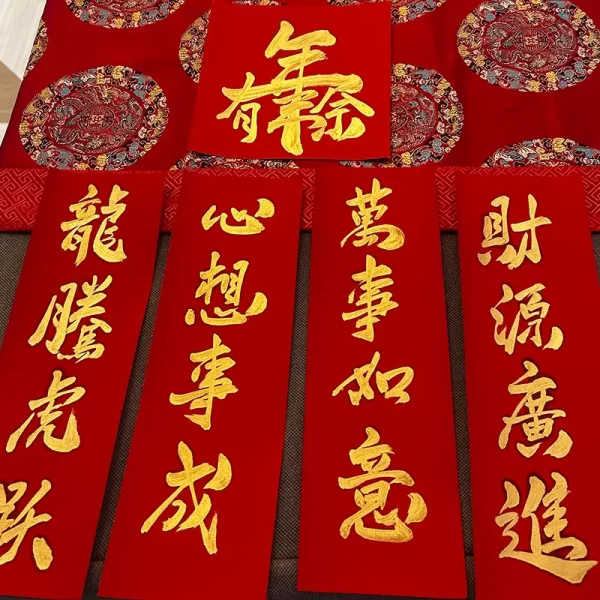 年年有余
財源廣進
萬事如意
心想事成
龍騰虎跃